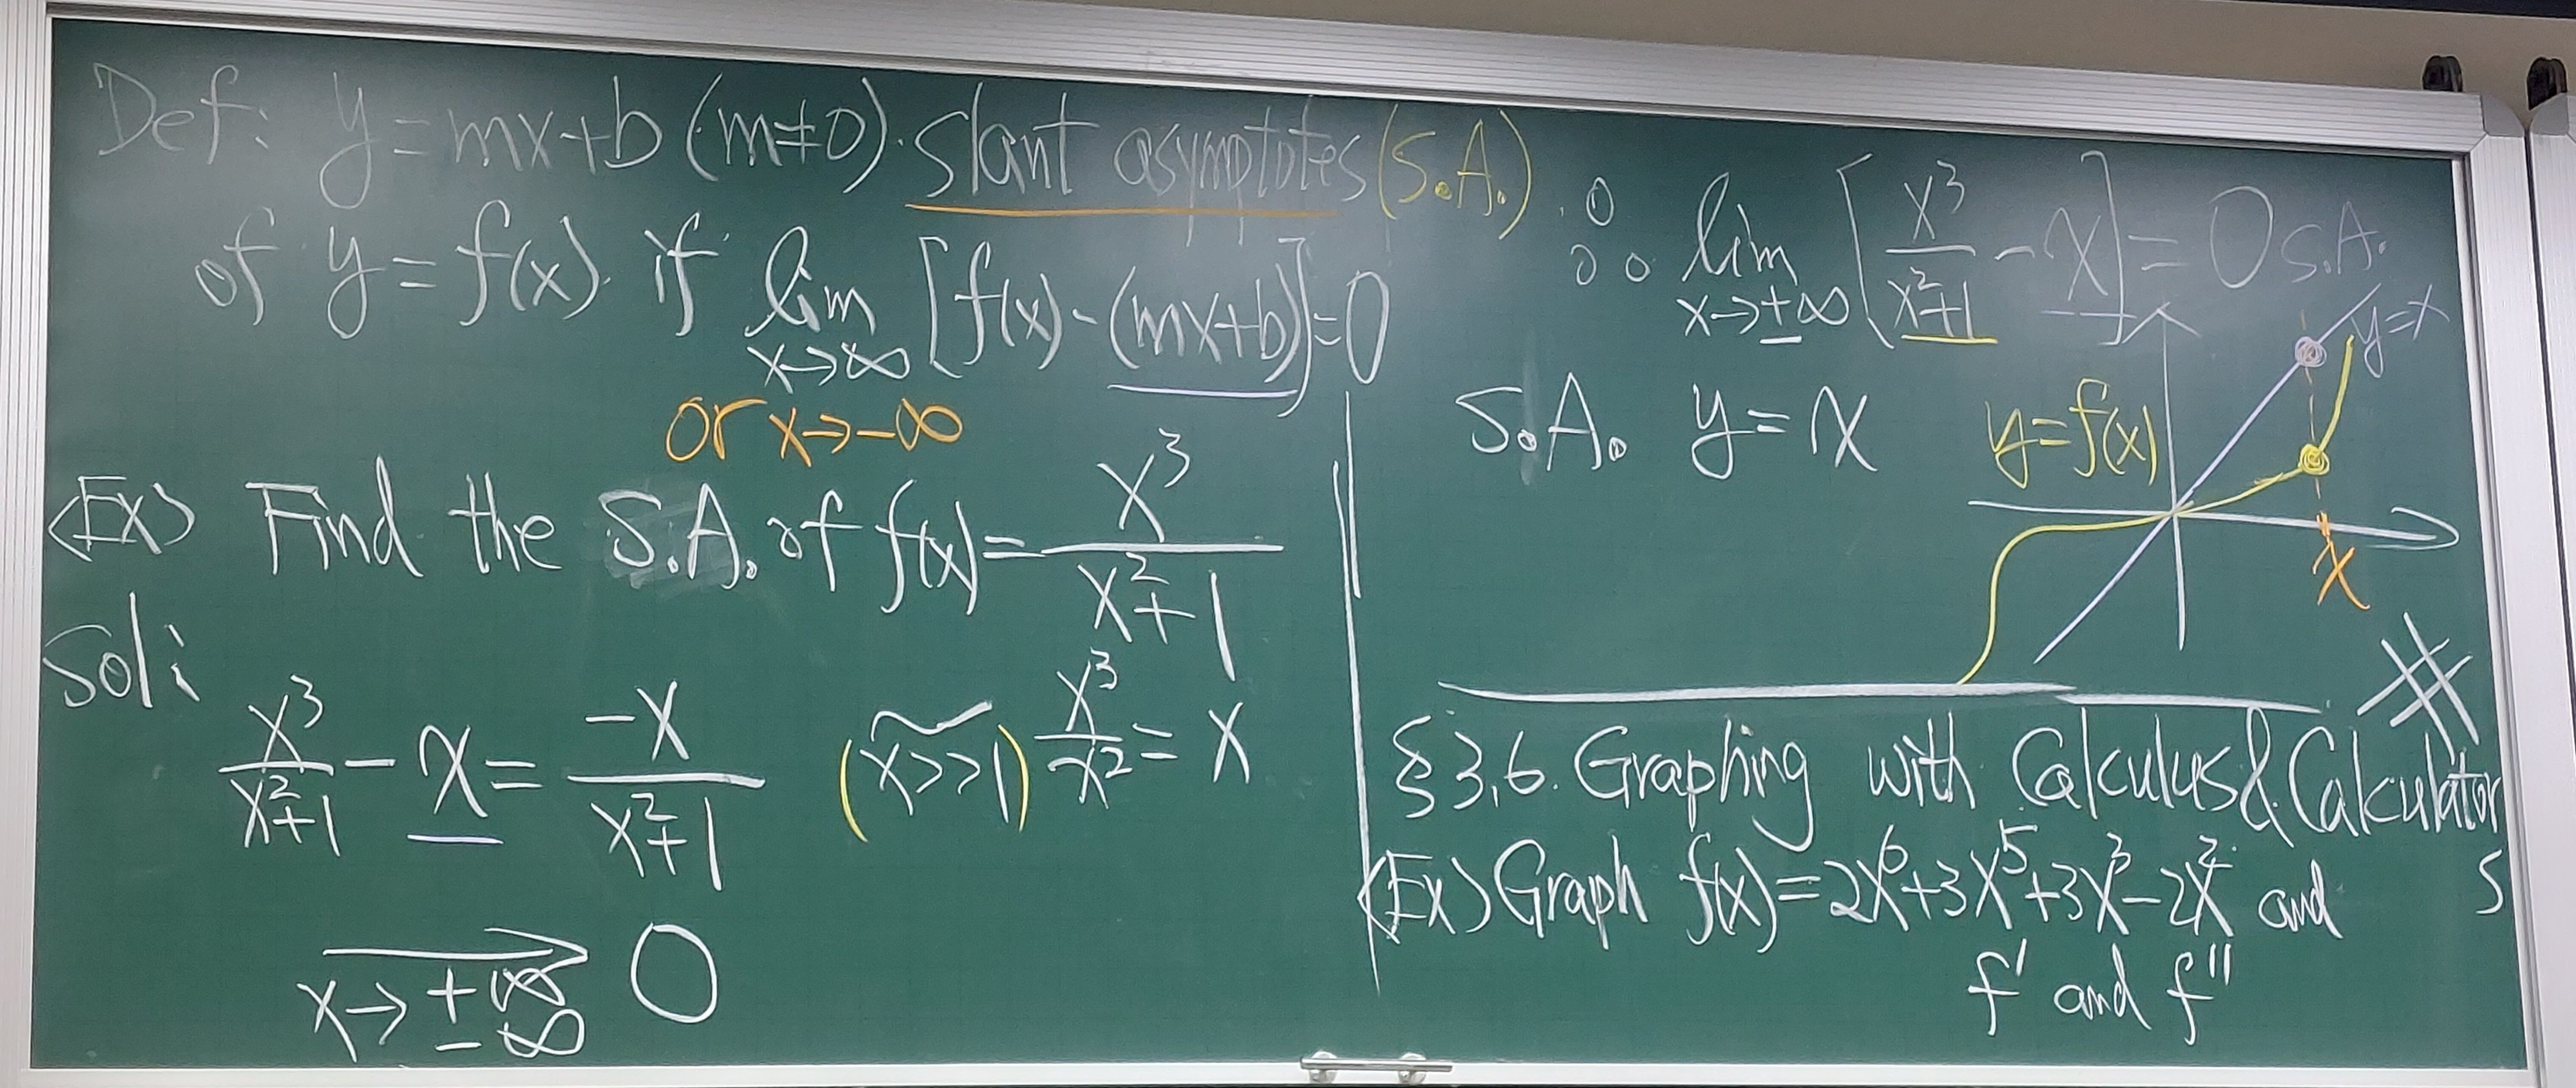 Def: y=mx+b (m≠0). slant asymptotes (S.A.)
of y=f(x). if lim x→∞ [f(x)-(mx+b)]=0
or x→-∞
<Ex> Find the S.A. of f(x)= x³/(x²+1)
Sol:
x³/(x²+1) - x = -x/(x²+1) (x>>1) ~ x³/x² = x
x→±∞ → 0
∴ lim x→±∞ [x³/(x²+1) - x] = 0
S.A. y=x
S.A.
y=x
y=f(x)
x
#
§3.6. Graphing with Calculus & Calculators
<Ex> Graph f(x)=2x⁶+3x⁵+3x³-2x² and
f' and f''